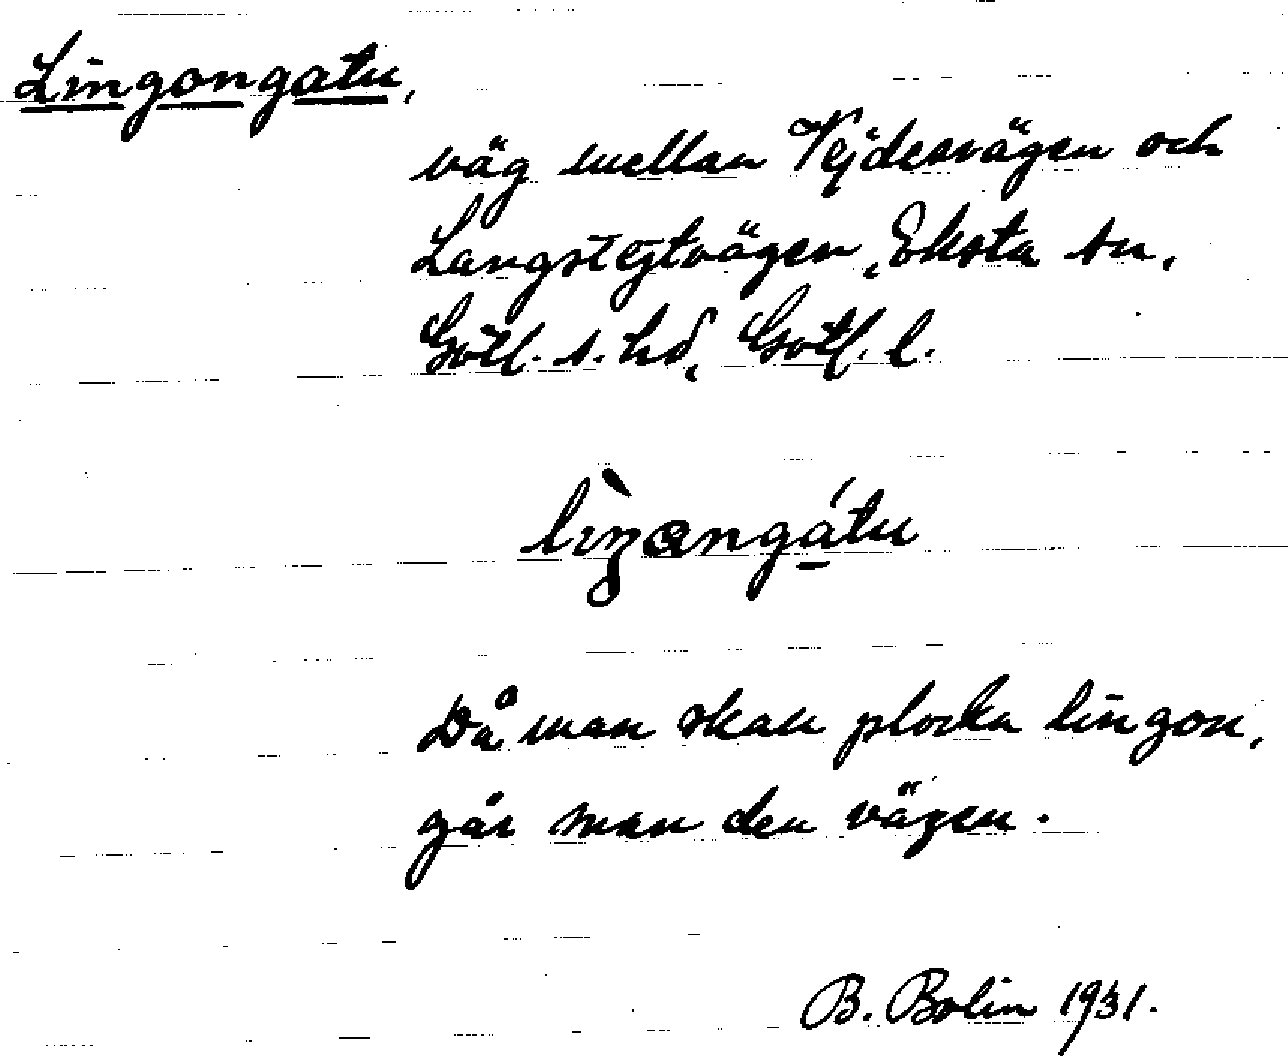 Lingongatu,
väg mellan Vejdesvägen och
Langstejtvägen, Eksta sn,
Gotl. s. hd, Gotl. l.
lìŋangátu
Då man skall plocka lingon,
går man den vägen.
B. Bolin 1931.